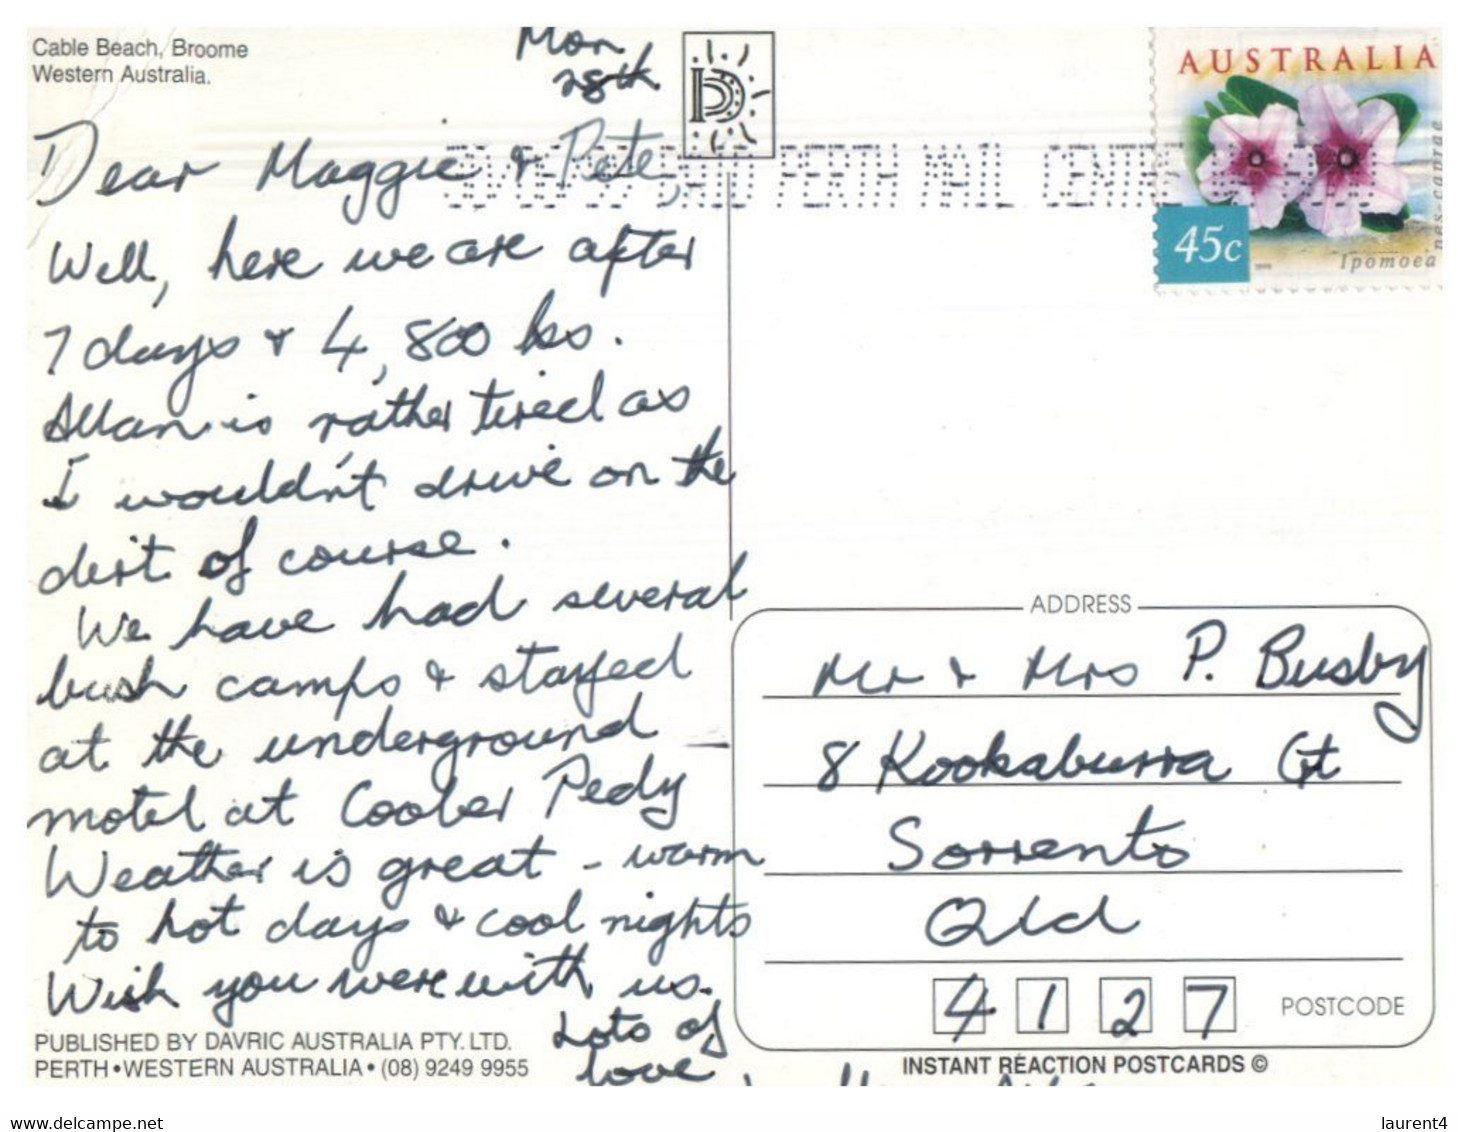 Cable Beach, Broome
Western Australia.
Mon
28th
Dear Maggie & Pete,
Well, here we are after
7 days & 4,800 ks.
Allan is rather tired as
I wouldn't drive on the
dirt of course.
We have had several
bush camps & stayed
at the underground
motel at Coober Pedy
Weather is great - warm
to hot days & cool nights
Wish you were with us.
Lots of
love
PUBLISHED BY DAVRIC AUSTRALIA PTY. LTD.
PERTH • WESTERN AUSTRALIA • (08) 9249 9955
PERTH MAIL CENTRE
AUSTRALIA
45c
Ipomoea
pes-caprae
ADDRESS
Mr & Mrs P. Busby
8 Kookaburra Ct
Sorrento
Qld
4127
POSTCODE
INSTANT REACTION POSTCARDS ©
www.delcampe.net
laurent4